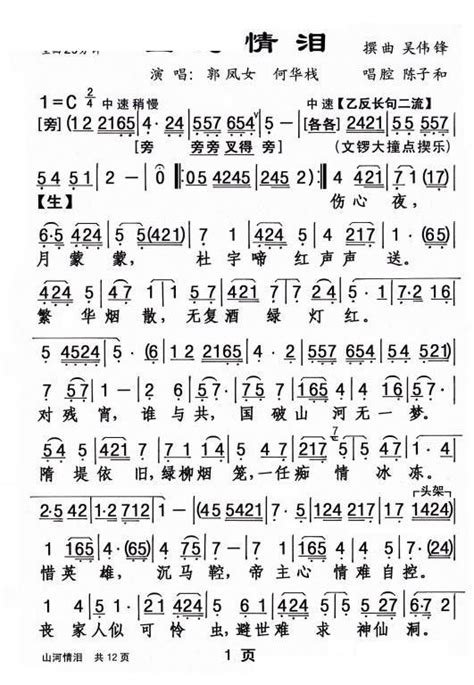 情泪 撰曲 吴伟锋
演唱：郭凤女 何华栈 唱腔 陈子和
1=C 2/4 中速稍慢 中速【乙反长句二流】
[旁](1 2 2165 | 4 · 24 | 557 654 | 5) [各各] | 2421 | 55 557 |
[旁 旁旁 叉得 旁] (文锣大撞点揳乐)
54 51 | 2 - | 1 0 ‖: 05 4245 | 245 2 :‖ 4 24 | 7 1 (17) |
【生】 伤心夜，
6·5 424 | 5 5(421) | 7 1 | 424 5 | 4 217 | 1 · (65) |
月蒙蒙，杜宇啼红声声送。
424 5 | 47 1 | 57 571 | 245 2421 | 5 1 | 7·2 16 |
繁华烟散，无复酒绿灯红。
5 4524 | 5 · (6 | 12 2165 | 4 · 2 | 557 654 | 5 · 2) |
7 1 | 165 · | 424 5 | 1 2 | 4 5 7 | 1 217 | 1 · |
对残宵，谁与共，国破山河无一梦。
54 5 | 421 7 | 15 24 | 5 · 5 1 | 24 217 | 5 45 | 2 · 1 |
隋堤依旧，绿柳烟笼，一任痴情冰冻。
头架
2·5 42 | 1·2 712 | 1 - | (245 5421 | 7 · 5 | 217 1424) |
1 165 | 4 · | 7 1 | 165 · | 4 57 | 1 5 7 | 5 · (24) |
惜英雄，沉马鞚，帝主心情难自控。
5 · 2 | 421 24 | 5 7 1 | 5 421 | 7 1 4 | 24 217 | 1 · (65) |
丧家人似可怜虫，避世难求神仙洞。
山河情泪 共12页 1页